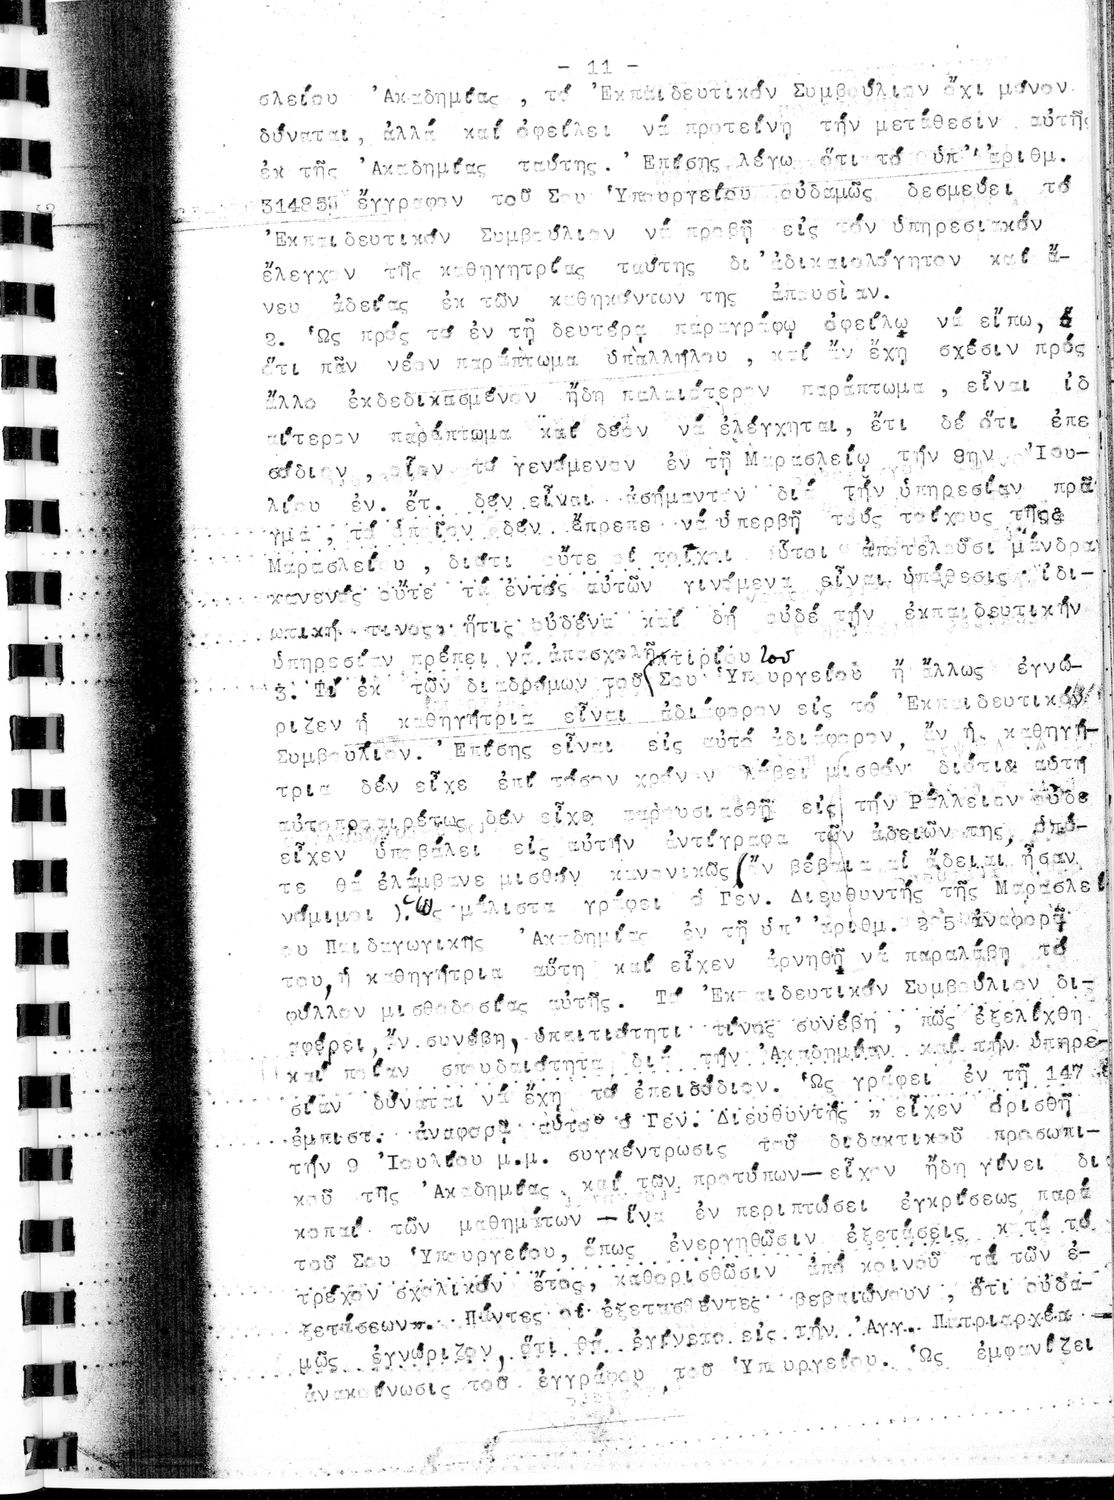 - 11 -
σλείου Ἀκαδημίας , τό Ἐκπαιδευτικόν Συμβούλιον ὄχι μόνον
δύναται, ἀλλά καί ὀφείλει νά προτείνῃ τήν μετάθεσιν αὐτῆς
ἐκ τῆς Ἀκαδημίας ταύτης. Ἐπίσης λέγω ὅτι τό ὑπ' ἀριθμ.
ἔγγραφον τοῦ Σου Ὑπουργείου οὐδαμῶς δεσμεύει τό
Ἐκπαιδευτικόν Συμβούλιον νά προβῇ εἰς τόν ὑπηρεσιακόν
ἔλεγχον τῆς καθηγητρίας ταύτης δι' ἀδικαιολόγητον καί ἄ-
νευ ἀδείας ἐκ τῶν καθηκόντων της ἀπουσίαν.
2. Ὡς πρός τό ἐν τῇ δευτέρᾳ παραγράφῳ ὀφείλω νά εἴπω,
ὅτι πᾶν νέον παράπτωμα ὑπαλλήλου , καί ἄν ἔχῃ σχέσιν πρός
ἄλλο ἐκδεδικασμένον ἤδη παλαιότερον παράπτωμα , εἶναι ἰδ
αίτερον παράπτωμα καί δέον νά ἐλέγχηται, ἔτι δέ ὅτι ἐπε
σόδιον , οἷον τό γενόμενον ἐν τῇ Μαρασλείῳ τήν 9ην Ἰου-
λίου ἐν. ἔτ. δέν εἶναι ἀσήμαντον διά τήν ὑπηρεσίαν πρᾶ
γμα , τό ὁποῖον δέν ἔπρεπε νά ὑπερβῇ τούς τοίχους τῆς
Μαρασλείου , διότι οὔτε οἱ τοῖχοι οὗτοι ἀποτελοῦσι μάνδρα
κανενός οὔτε τά ἐντός αὐτῶν γινόμενα εἶναι ὑπόθεσις ἰδι-
ωτική τινος, ἥτις οὐδένα καί δή οὐδέ τήν ἐκπαιδευτικήν
ὑπηρεσίαν πρέπει νά ἀπασχολῇ κτιρίου τοῦ
3. Τί ἐκ τῶν διαδρόμων τοῦ Σου Ὑπουργείου ἤ ἄλλως ἐγνώ-
ριζεν ἡ καθηγήτρια εἶναι ἀδιάφορον εἰς τό Ἐκπαιδευτικόν
Συμβούλιον. Ἐπίσης εἶναι εἰς αὐτό ἀδιάφορον, ἄν ἡ καθηγή-
τρια δέν εἶχε ἐπί τόσον χρόνον λάβει μισθόν διότι αὕτη
αὐτοπροαιρέτως δέν εἶχε παρουσιασθῆ εἰς τήν Ράλλειον οὐδέ
εἶχεν ὑποβάλει εἰς αὐτήν ἀντίγραφα τῶν ἀδειῶν της, ὁπό-
τε θά ἐλάμβανε μισθόν κανονικῶς (ἄν βέβαια αἱ ἄδειαι ἦσαν
νόμιμοι ). Ὡς μάλιστα γράφει ὁ Γεν. Διευθυντής τῆς Μαρασλεί
ου Παιδαγωγικῆς Ἀκαδημίας ἐν τῇ ὑπ' ἀριθμ. ἀναφορᾷ
του, ἡ καθηγήτρια αὕτη καί εἶχεν ἀρνηθῆ νά παραλάβῃ τό
φύλλον μισθοδοσίας αὐτῆς. Τό Ἐκπαιδευτικόν Συμβούλιον δι-
αφέρει, ἄν συνέβη, ὑπαιτιότητι τίνος συνέβη , πῶς ἐξελίχθη
καί ποίαν σπουδαιότητα διά τήν Ἀκαδημίαν καί τήν ὑπηρε-
σίαν δύναται νά ἔχῃ τό ἐπεισόδιον. Ὡς γράφει ἐν τῇ 147
ἐμπιστ. ἀναφορᾷ αὐτοῦ ὁ Γεν. Διευθυντής " εἶχεν ὁρισθῆ
τήν 9 Ἰουλίου μ.μ. συγκέντρωσις τοῦ διδακτικοῦ προσωπι-
κοῦ τῆς Ἀκαδημίας καί τῶν προτύπων—εἶχον ἤδη γίνει δια
κοπαί τῶν μαθημάτων —ἵνα ἐν περιπτώσει ἐγκρίσεως παρά
τοῦ Σου Ὑπουργείου, ὅπως ἐνεργηθῶσιν ἐξετάσεις κατά τό
τρέχον σχολικόν ἔτος, καθορισθῶσιν ἀπό κοινοῦ τά τῶν ἐ-
ξετάσεων". Πάντες οἱ ἐξετασθέντες βεβαιώνουν , ὅτι οὐδα-
μῶς ἐγνώριζον, ὅτι θά ἐγίνετο εἰς τήν Ἀγγ. Πατριαρχέα —
ἀνακοίνωσις τοῦ ἐγγράφου τοῦ Ὑπουργείου. Ὡς ἐμφανίζει